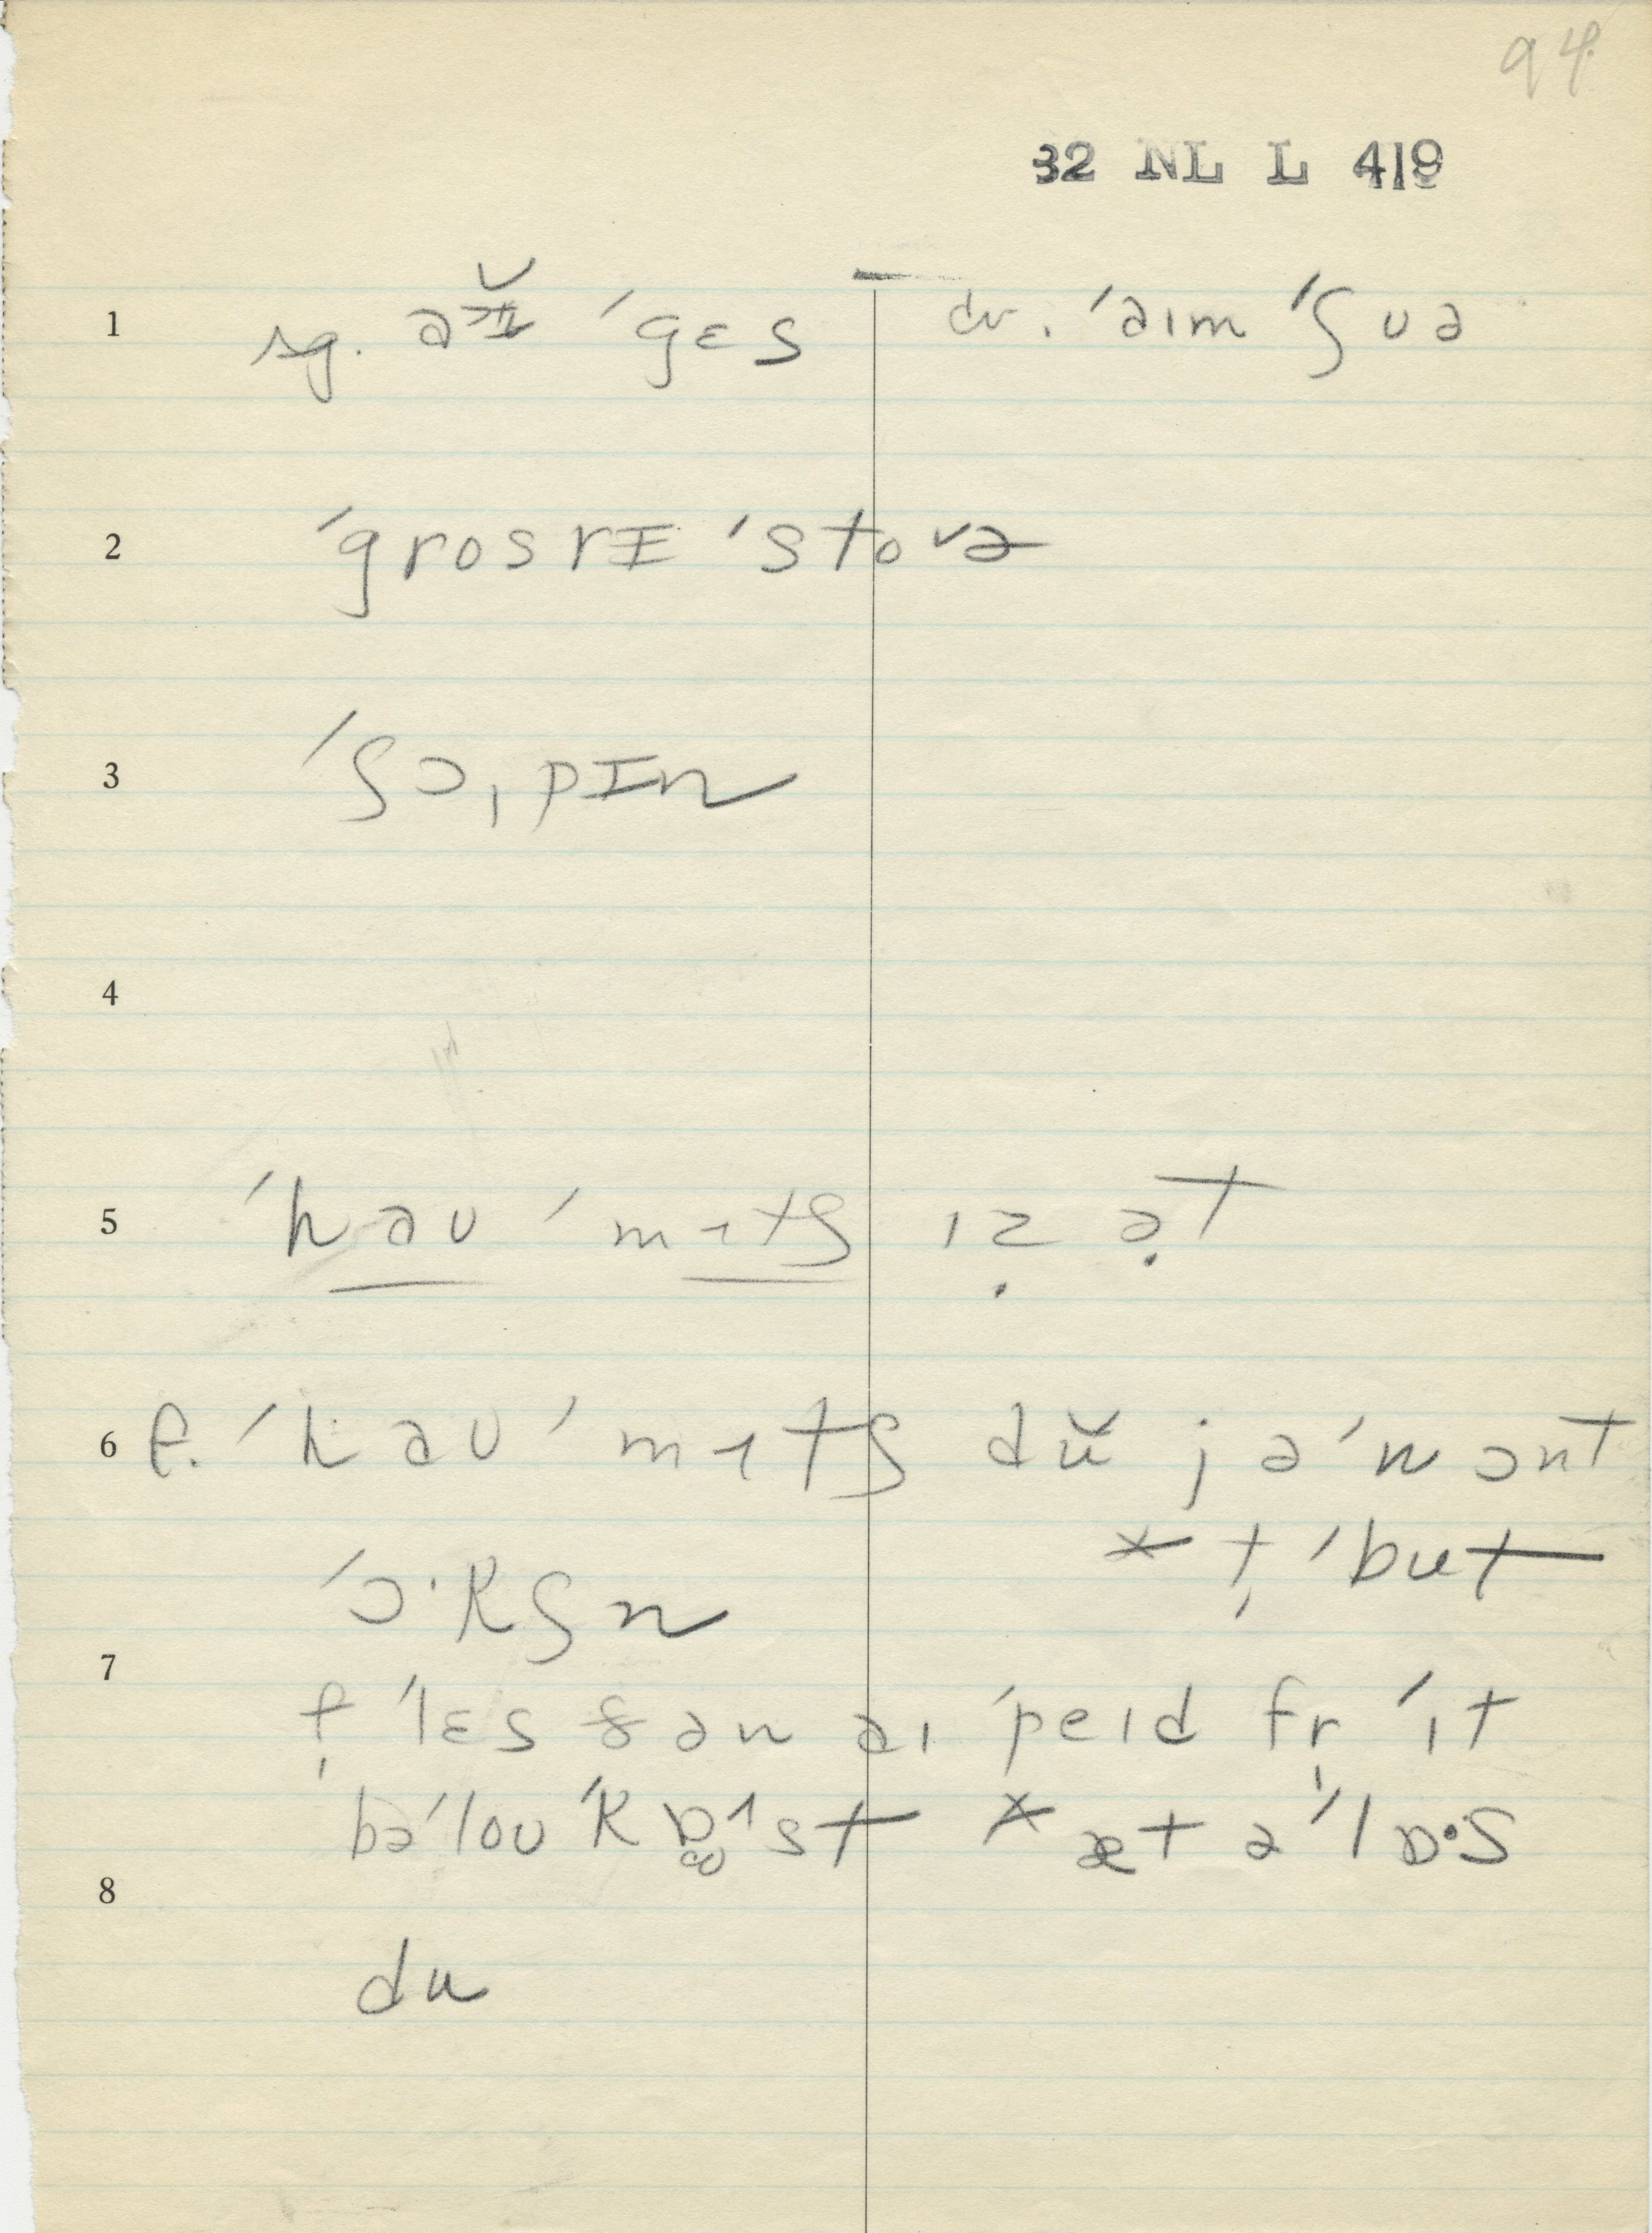 94
32 NL L 419
1 sg. əɪ̆ ˈgɛs cr. ˈaɪm ˈʃʊə
2 ˈgrosrɪ ˈstovə
3 ˈʃɔˌpɪn
4
5 ˈhaʊ ˈmɪtʃ ɪẓ ə̣t
6 f. ˈhaʊ ˈmɪtʃ dŭ jə ˈwɔnt
* t̩ ˈbut
ˈɔ·kʃn
7 f̩ ˈlɛs ðən aɪ ˈpeɪd fr̩ ˈɪt
bəˈloʊ ˈkɒˈst * æt ə ˈlɒ·s
8
du